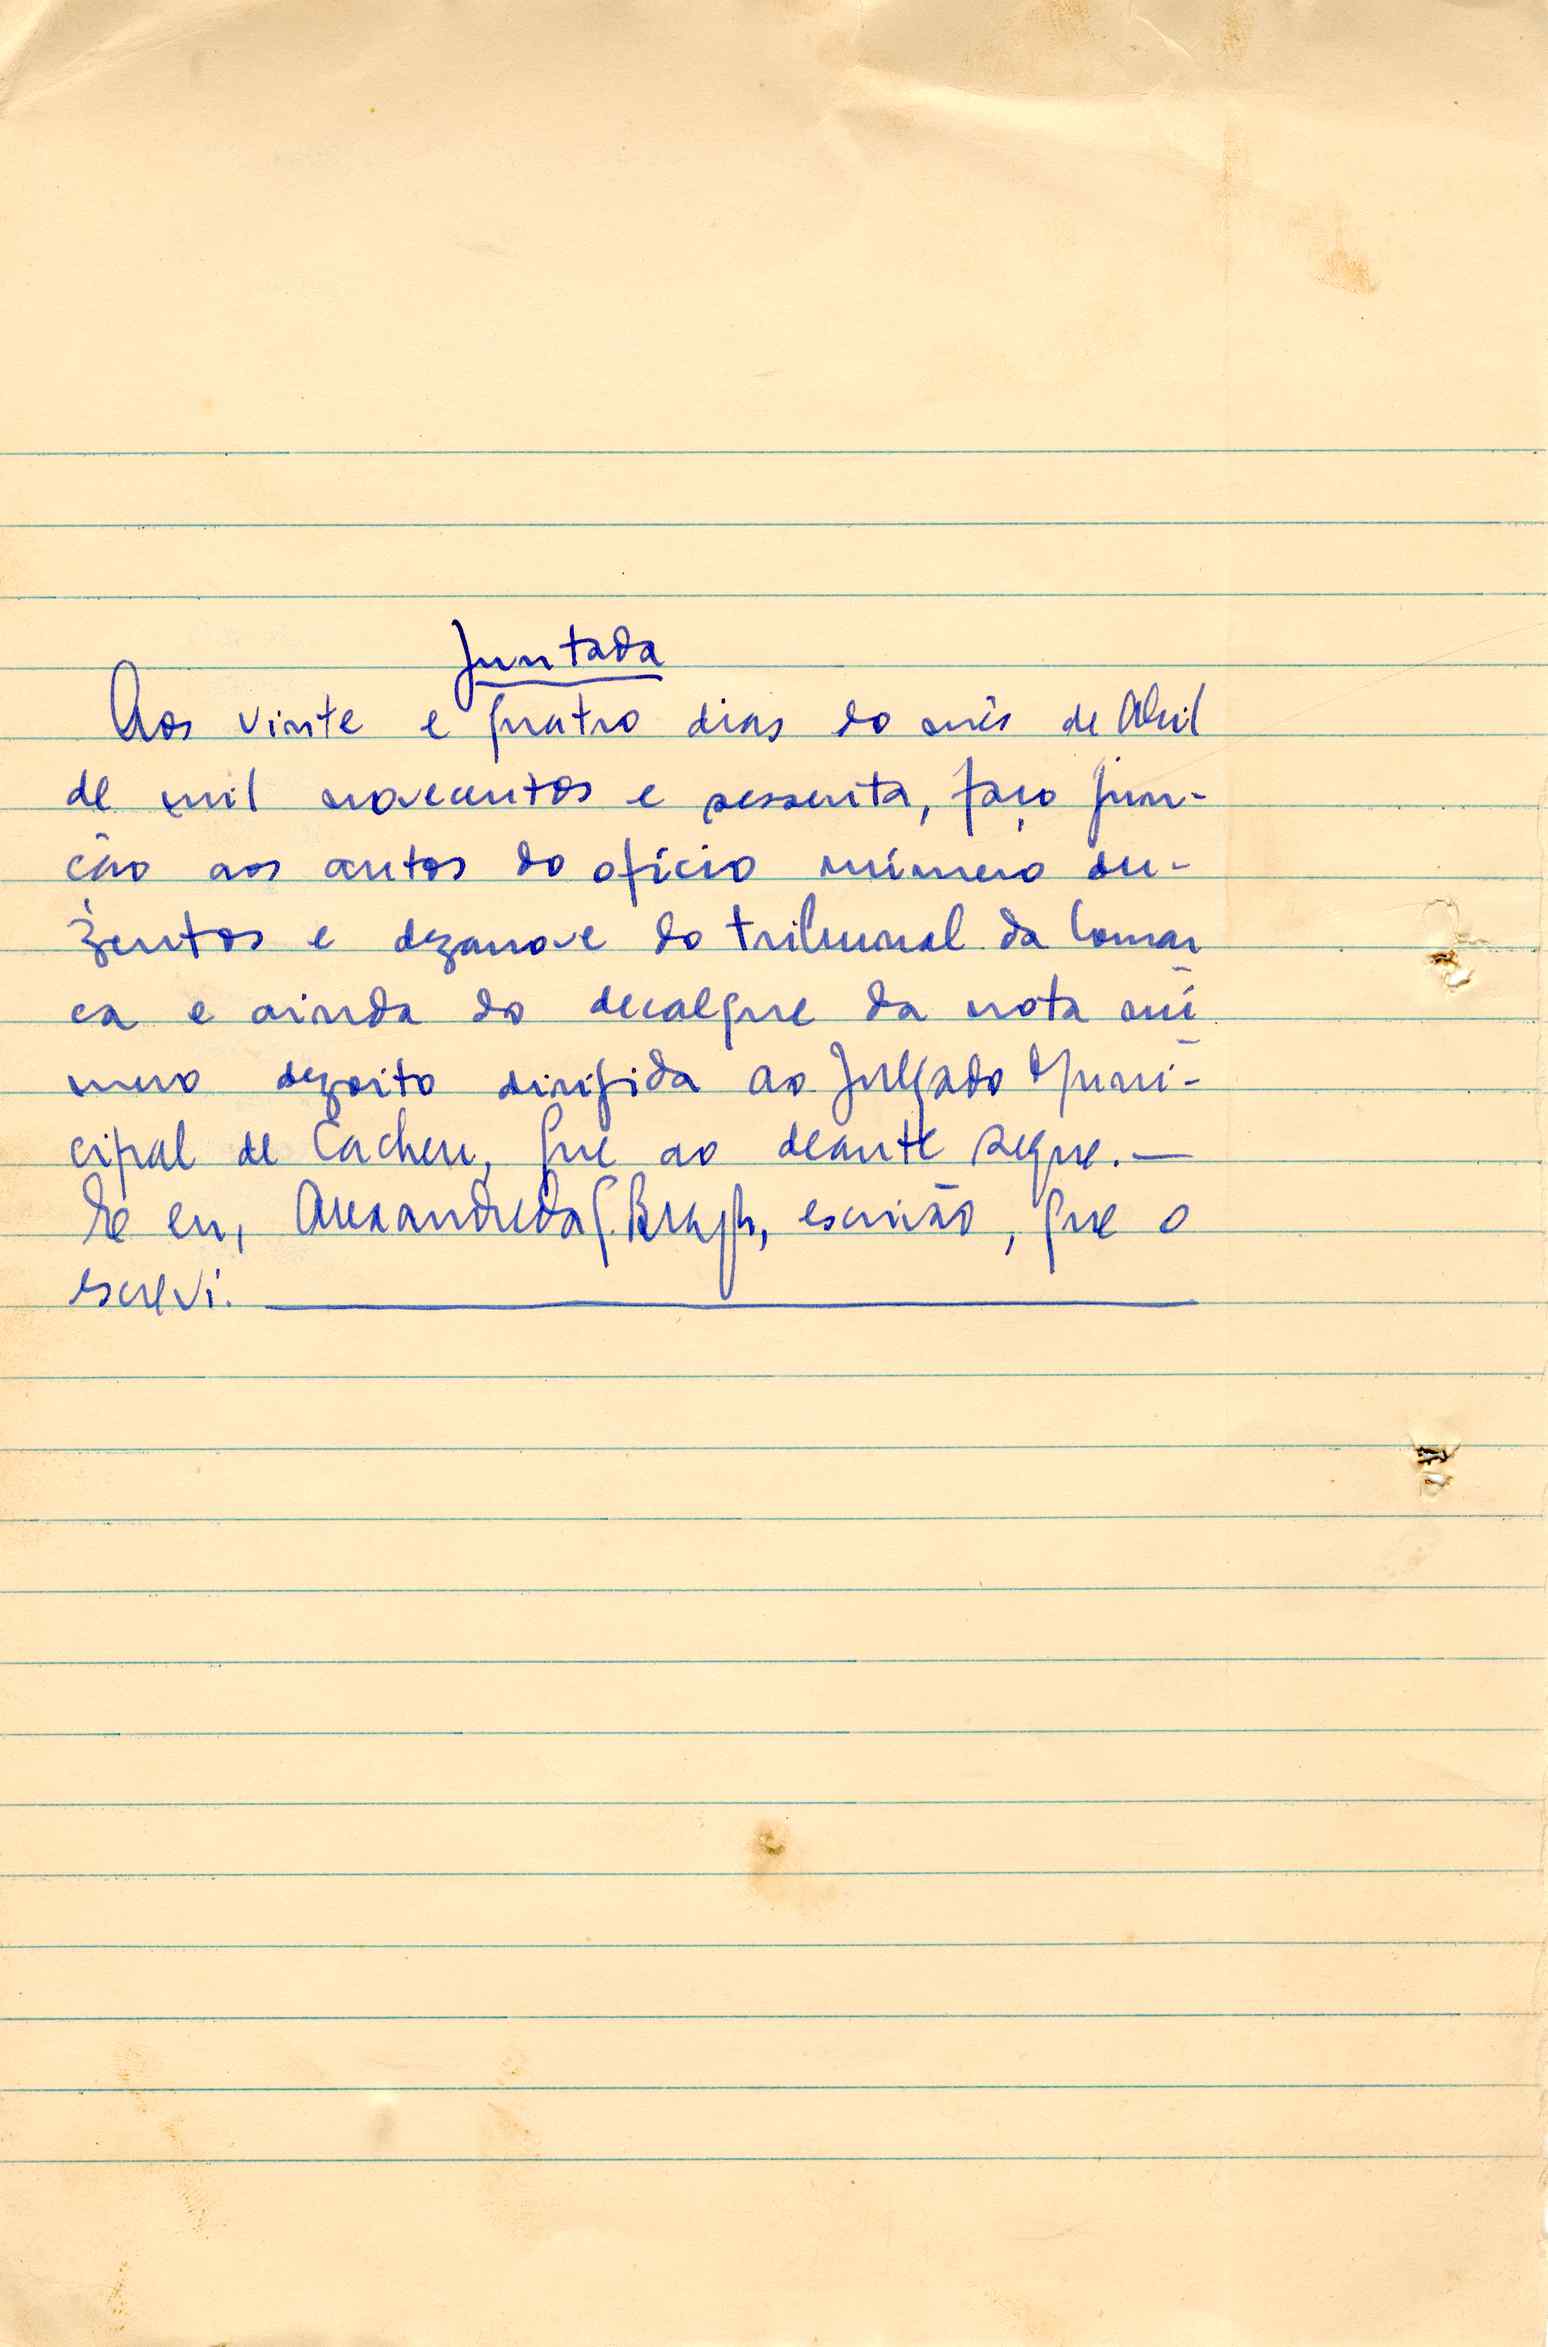 Juntada
Aos vinte e quatro dias do mês de Abril
de mil novecentos e sessenta, faço jun-
ção aos autos do ofício número du-
zentos e dezanove do tribunal da Comar
ca e ainda do decalque da nota nú
mero dezoito dirigida ao Julgado Muni-
cipal de Cacheu, que ao deante segue.—
E eu, Alexandre da C. Braga, escrivão, que o
escrevi.